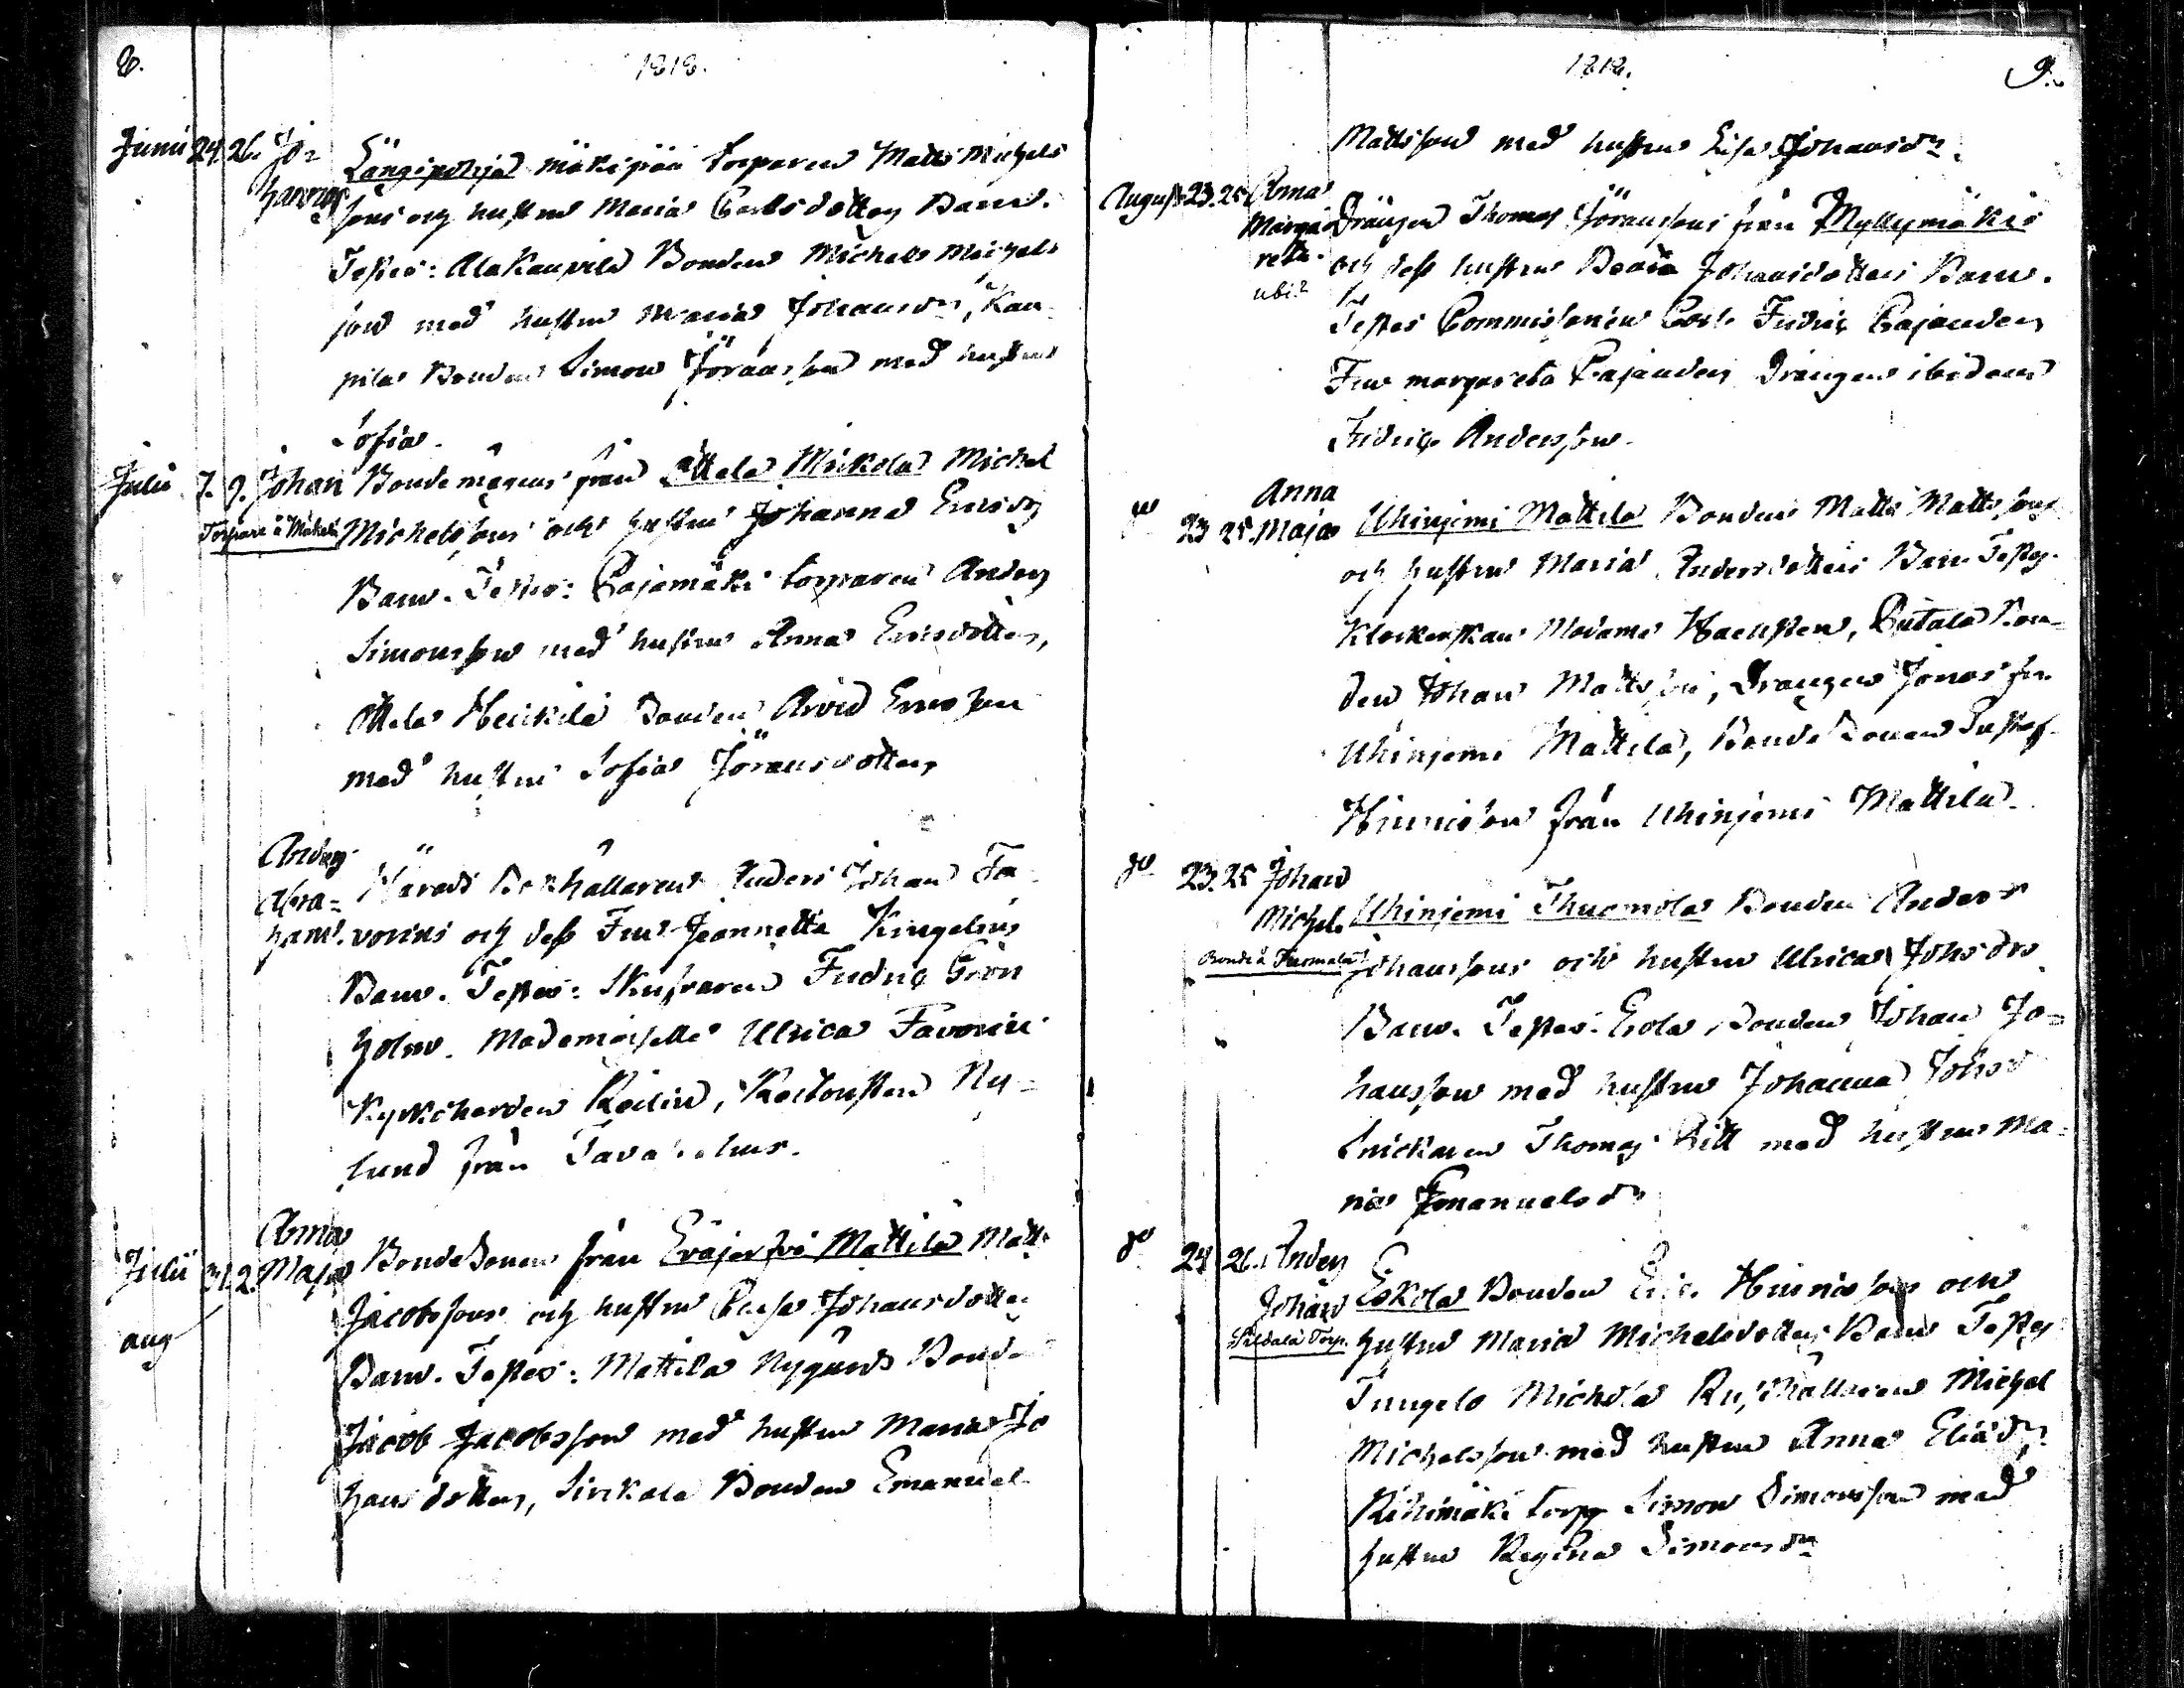 8.
1818.
Junii 24. 26. Jo=
hannes
Längipohja mäkipää torparen Matts Michels
sons och hustrus Maria Carlsdotters Barn.
Testes: Alakaupila Bonden Michel Michels
son med hustru Maria Johansdr, Kau
pila Bonden Simon Jöransson med hustru
Sofia.
Julii 7. 9. Johan
Torpare å Mickola
Bonde mågens från Attela Mickola Michel
Michelssons och hustrus Johanna Ericsdrs
Barn. Testes: Pajamäki torparen Anders
Simonsson med hustru Anna Ericsdotter,
Attela Heickilä Bonden Arvid Ericsson
med hustru Sofia Jöransdotter
Anders
Abra=
ham.
Härads Bokhållarens Anders Johan Fa
vorins och dess Fru Jeannette Kingelins
Barn. Testes: Fredric Grön
holm. Mademoiselle Ulrica Favorin
Kyrkoherden, Ny=
lund från Tavastehus.
Julii 31. 2. Anna
Maja
aug
Bonde Sonens från Eräjerfvi Mattila Matts
Jacobssons och hustrus Johansdotters
Barn. Testes: Mattila Nygårds Bonde
Jacob Jacobsson med hustru Maria Jo
hansdotter, Sirckala Bonden Emanuel
1818.
9.
Mattsson med hustru Lisa Johansdr.
August 23. 25 Anna
Marga
reta.
Drängen Thomas Jöranssons från Myllymäki
och dess hustrus Beata Johansdotters Barn.
Testes Commissarien Carl Fredric Cajander
Fru Margareta Cajander Drängen ibidem
Fredric Andersson.
do 23 25. Anna
Maja
Uhinjemi Mattila Bonden Matts Mattssons
och hustrus Maria Andersdotters Barn. Testes.
Klockerskan Madame, Bon=
den Johan Mattsson, Drängen Jonas från
Uhinjemi Mattila, Bonde Sonen Gustaf
Hinricsson från Uhinjemi Mattila.
do 23. 25 Johan
Michel.
Bonde å Tuomola
Uhinjemi Thuomola Bonden Anders
Johanssons och hustrus Ulrica Johsdrs
Barn. Testes: Erola Bonden Johan Jo=
hansson med hustru Johanna Johsd
Snickaren Thomas med hustru Ma=
ria Emanuelsdr
do 24 26. Anders
Johan
Torp.
Eskola Bonden Eric Hinricssons och
hustrus Maria Michelsdotters Barn Testes
Michola Rusthållaren Michel
Michelsson med hustru Anna Eliædr
Riihimäki torp Simon Simonsson med
hustru Regina Simonsdr